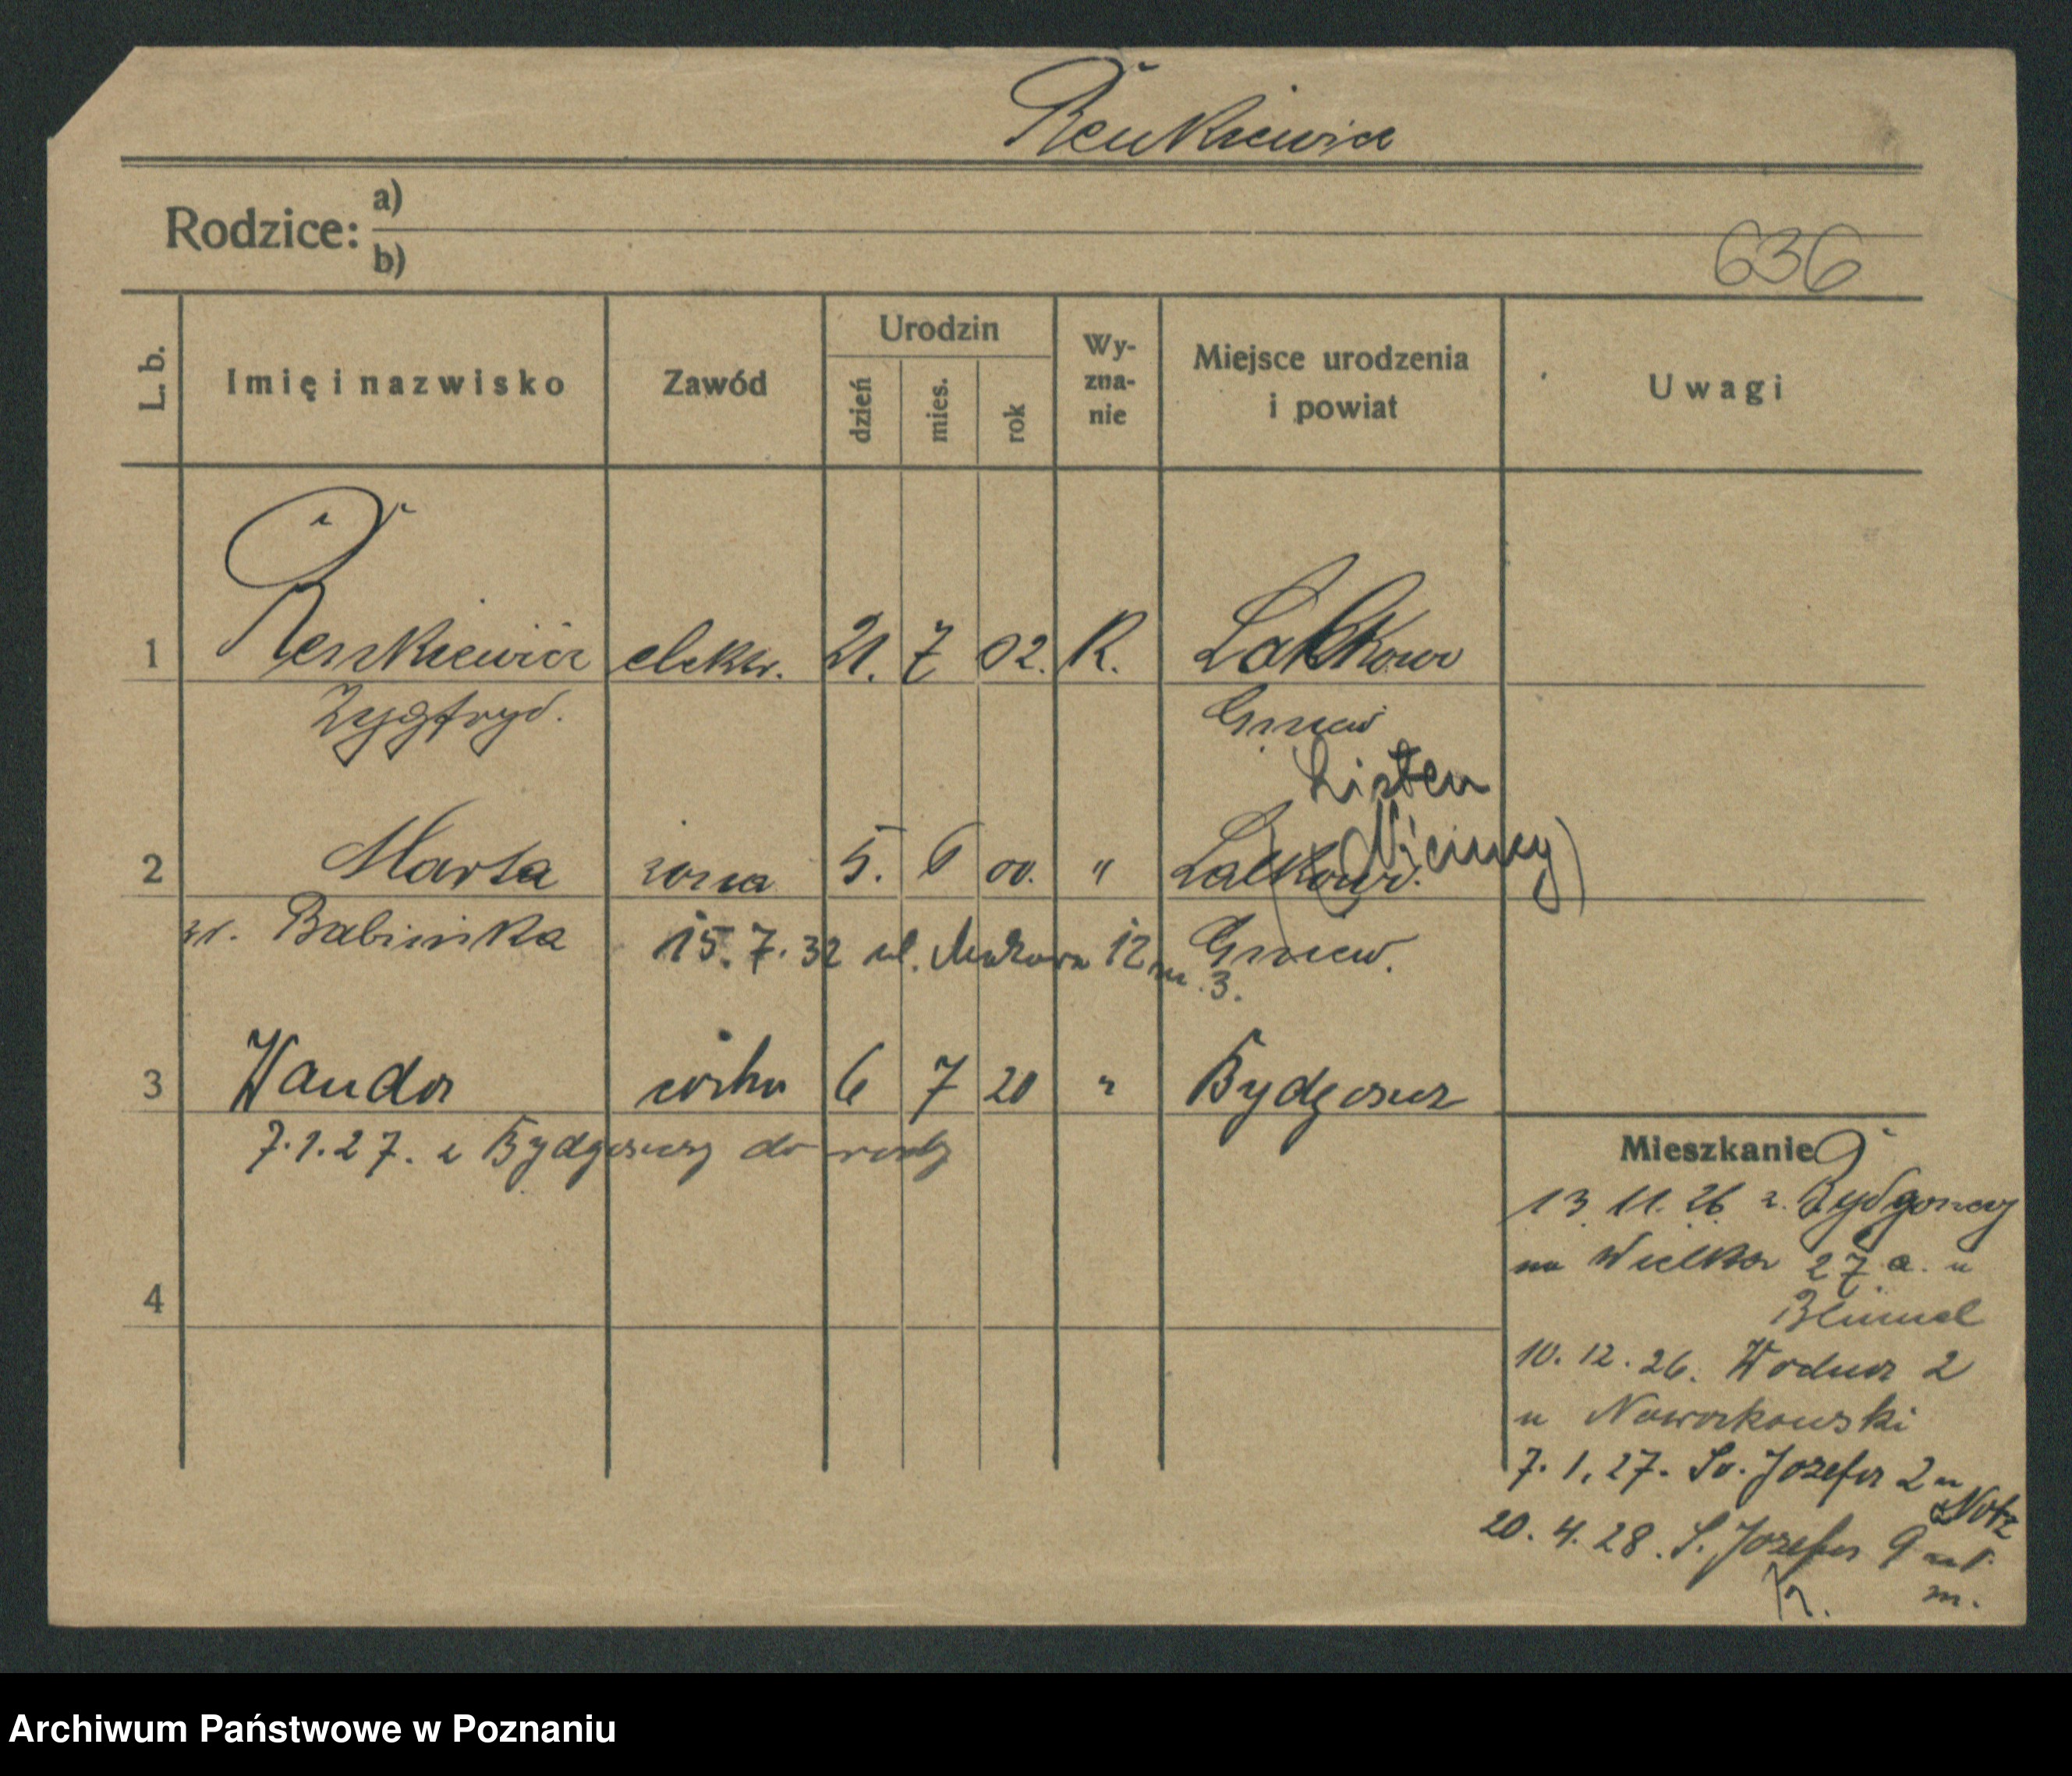 Renkiewicz
Rodzice: a)
b)
636
L. b.
Imię i nazwisko
Zawód
Urodzin
dzień
mies.
rok
Wy-
zna-
nie
Miejsce urodzenia
i powiat
Uwagi
1 Renkiewicz elektr. 21. 7 02. R. Lalkowo
Zygfryd. Gniew
Listen
(Niemcy)
2 Marta żona 5. 6 00. " Lalkowo.
Babińska Gniew.
15.7.32 ul. 12 m. 3.
3 Wanda córka 6 7 20 " Bydgoszcz
7.1.27. z Bydgoszczy do
4
Mieszkanie
13 11. 26 z. Bydgoszczy
na Wielka 27 a. u
Blümel
10. 12. 26. Wodna 2
u Nowakowski
7. 1. 27. Św. Józefa 2 u
Notz
20. 4. 28. Ś. Józefa 9
m.
K.
Archiwum Państwowe w Poznaniu